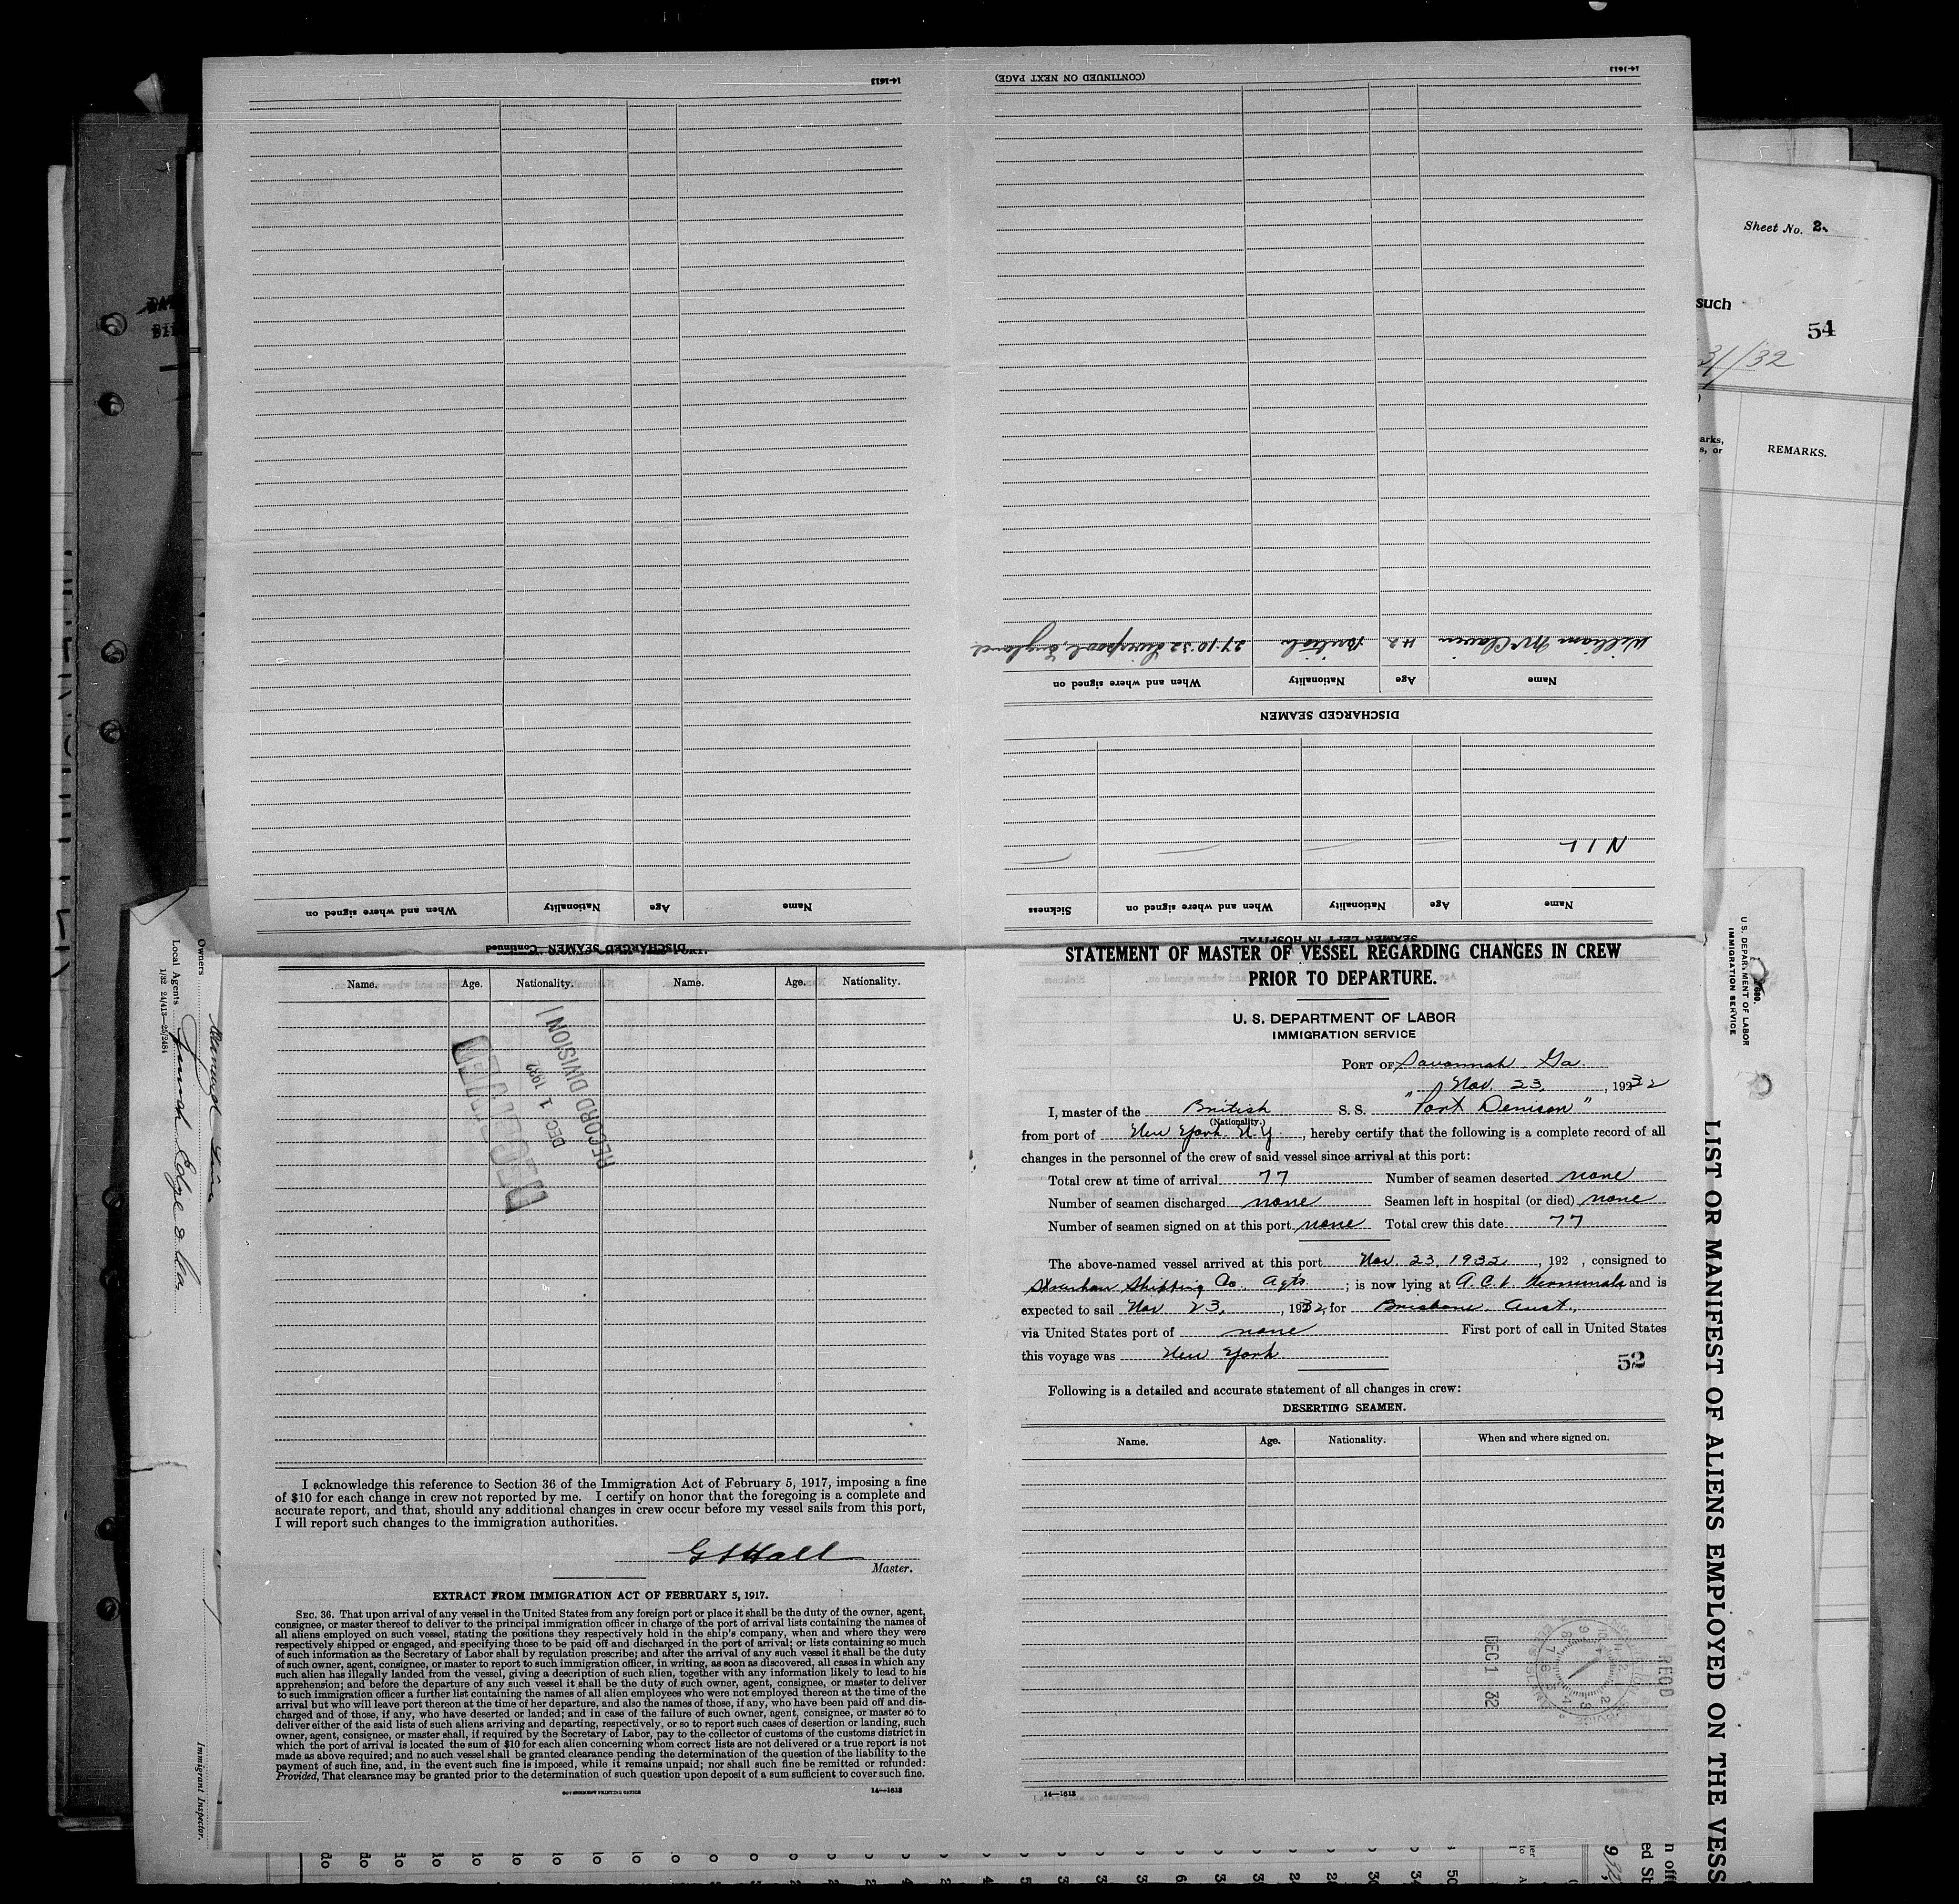 14-1613
(CONTINUED ON NEXT PAGE)
14-1613
William McClaven 42 British 27.10.32 Liverpool, England
Name Age Nationality When and where signed on
DISCHARGED SEAMEN
NIL
Name Age Nationality When and where signed on
Name Age Nationality When and where signed on Sickness
SEAMEN LEFT IN HOSPITAL
DISCHARGED SEAMEN—Continued
Name. Age. Nationality. Name. Age. Nationality.
RECEIVED
DEC 1 1932
RECORD DIVISION
I acknowledge this reference to Section 36 of the Immigration Act of February 5, 1917, imposing a fine
of $10 for each change in crew not reported by me. I certify on honor that the foregoing is a complete and
accurate report, and that, should any additional changes in crew occur before my vessel sails from this port,
I will report such changes to the immigration authorities.
G S Hall
Master.
EXTRACT FROM IMMIGRATION ACT OF FEBRUARY 5, 1917.
SEC. 36. That upon arrival of any vessel in the United States from any foreign port or place it shall be the duty of the owner, agent,
consignee, or master thereof to deliver to the principal immigration officer in charge of the port of arrival lists containing the names of
all aliens employed on such vessel, stating the positions they respectively hold in the ship's company, when and where they were
respectively shipped or engaged, and specifying those to be paid off and discharged in the port of arrival; or lists containing so much
of such information as the Secretary of Labor shall by regulation prescribe; and after the arrival of any such vessel it shall be the duty
of such owner, agent, consignee, or master to report to such immigration officer, in writing, as soon as discovered, all cases in which any
such alien has illegally landed from the vessel, giving a description of such alien, together with any information likely to lead to his
apprehension; and before the departure of any such vessel it shall be the duty of such owner, agent, consignee, or master to deliver
to such immigration officer a further list containing the names of all alien employees who were not employed thereon at the time of the
arrival but who will leave port thereon at the time of her departure, and also the names of those, if any, who have been paid off and dis-
charged and of those, if any, who have deserted or landed; and in case of the failure of such owner, agent, consignee, or master so to
deliver either of the said lists of such aliens arriving and departing, respectively, or so to report such cases of desertion or landing, such
owner, agent, consignee, or master shall, if required by the Secretary of Labor, pay to the collector of customs of the customs district in
which the port of arrival is located the sum of $10 for each alien concerning whom correct lists are not delivered or a true report is not
made as above required; and no such vessel shall be granted clearance pending the determination of the question of the liability to the
payment of such fine, and, in the event such fine is imposed, while it remains unpaid; nor shall such fine be remitted or refunded:
Provided, That clearance may be granted prior to the determination of such question upon deposit of a sum sufficient to cover such fine.
GOVERNMENT PRINTING OFFICE 14—1613
STATEMENT OF MASTER OF VESSEL REGARDING CHANGES IN CREW
PRIOR TO DEPARTURE.
U. S. DEPARTMENT OF LABOR
IMMIGRATION SERVICE
PORT OF Savannah Ga
Nov. 23, 1932
I, master of the British S. S. "Port Denison"
(Nationality.)
from port of New York N.Y., hereby certify that the following is a complete record of all
changes in the personnel of the crew of said vessel since arrival at this port:
Total crew at time of arrival 77 Number of seamen deserted none
Number of seamen discharged none Seamen left in hospital (or died) none
Number of seamen signed on at this port none Total crew this date 77
The above-named vessel arrived at this port Nov. 23, 1932, 192 , consigned to
Strachan Shipping Co. Agts ; is now lying at A.C.L. Terminals and is
expected to sail Nov 23, 1932, for Brisbane Aust.,
via United States port of none First port of call in United States
this voyage was New York
52
Following is a detailed and accurate statement of all changes in crew:
DESERTING SEAMEN.
Name. Age. Nationality. When and where signed on.
RECD
DEC 1 32
14—1613
Sheet No. 2.
such
54
31/32
REMARKS.
U. S. DEPARTMENT OF LABOR
IMMIGRATION SERVICE
LIST OR MANIFEST OF ALIENS EMPLOYED ON THE VESS
Owners
Local Agents Funch Edge & Co.
1/32 24/413—25/2484
Immigrant Inspector.